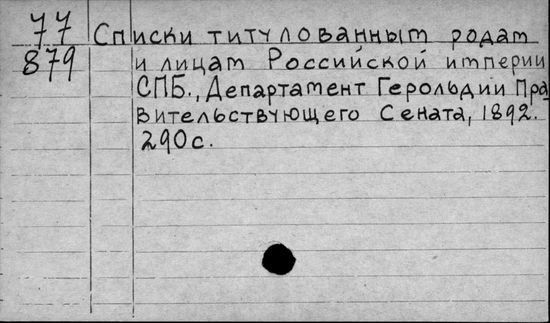 77 Списки титулованным родам
879 и лицам Российской империи
СПБ., Департамент Герольдии Пра
вительствующего Сената, 1892.
290с.